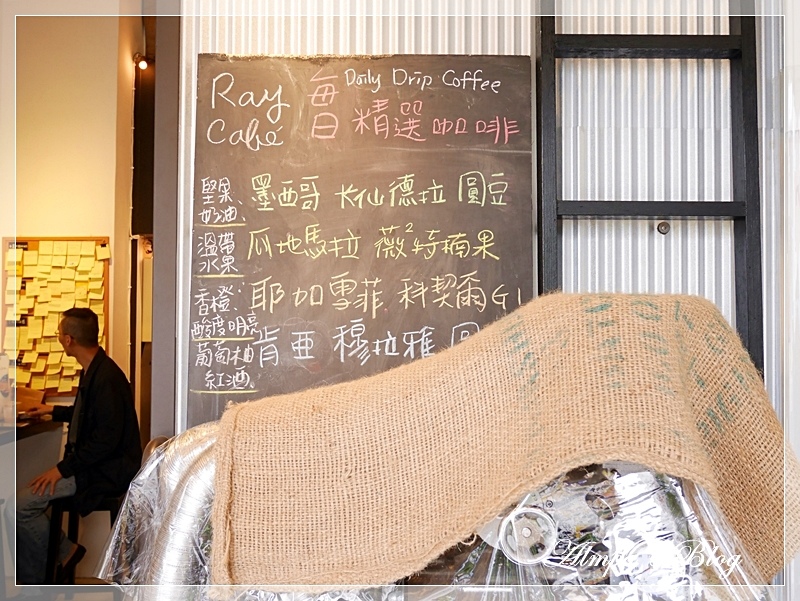 Ray
Café
每日
Daily Drip Coffee
精選咖啡
堅果、
奶油、
墨西哥 卡仙德拉 圓豆
溫帶
水果
瓜地馬拉 薇薇特楠果
香橙、
酸度明亮
耶加雪菲 科契爾 G1
葡萄柚
紅酒、
肯亞 穆拉雅 圓
Blog